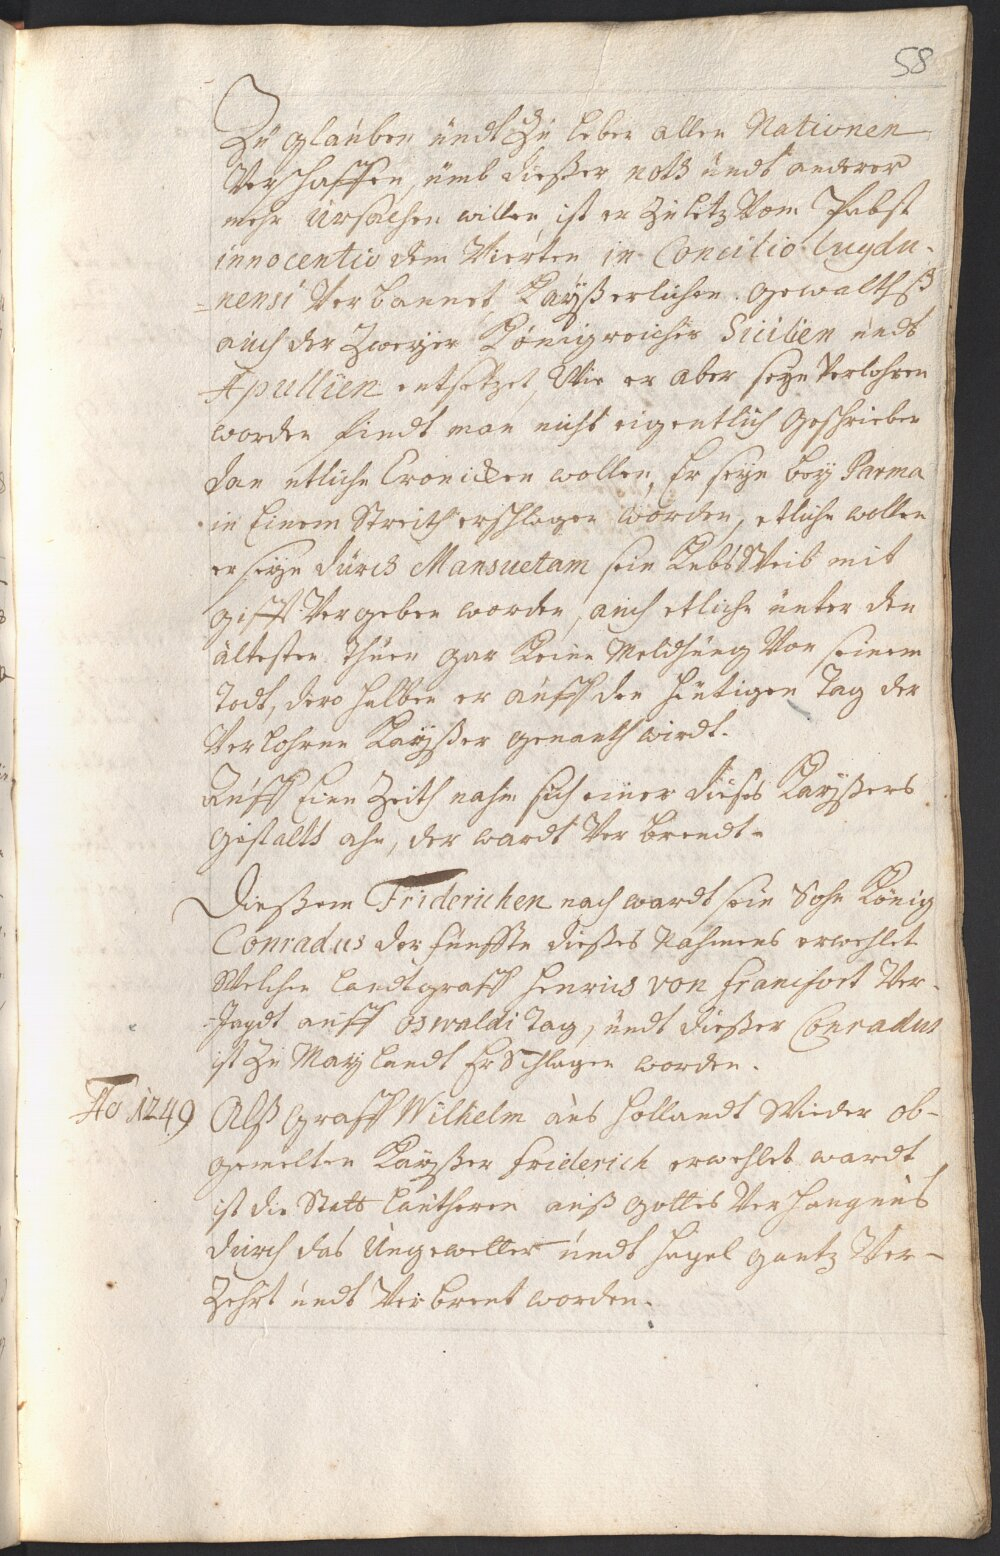 58
Zu glauben undt zu leben allen Nationen
Verschaffen, umb dießer noth undt anderer
mehr ursachen willen, ist er zuletz Vom Pabst
innocentio dem Vierten in Concilio Lugdu-
-nensi Verbannet, Kayßerlichen gewalthß
auch der Zweyer Königreicher Sicilien undt
Apullien entsetzet, Wie er aber seye Verlohren
worden findt man nicht eigentlich geschrieben
dan etliche Croniken wollen, Er seye bey Parma
in Einem Streith erschlagen worden, etliche wollen
er seye durch Mansuetam sein KebsWeib mit
gifft Vergeben worden, auch etliche unter den
ältesten thuen gar Keine Meldhung Von seinem
Todt, dero halben er auff den heutigen Tag der
Verlohrne Kayßer genanth wirdt.
Auff Eine Zeith nahm sich einer dießes Kayßers
gestalth ahn, der wardt Verbrendt.
Dießem Friderichen nach wardt sein Sohn König
Conradus der fünffte dießes Nahmens erwehlet
Welchen Landtgraff Henricus von francfort Ver-
-Jagdt auff oswaldi Tag, undt dießer Conradus
ist zu Maylandt Erschlagen worden.
Ao 1249 Alß graff Wilhelm aus Hollandt Wieder ob-
gemelten Kayßer friderich erwehlet wardt
ist die Statt Lautheren auß gottes Verhangnus
durch das Ungewetter undt hagel gantz Ver-
Zehrt undt Verbrent worden.